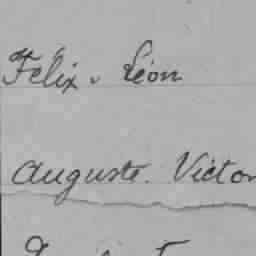 Félix. Léon
Auguste. Victor